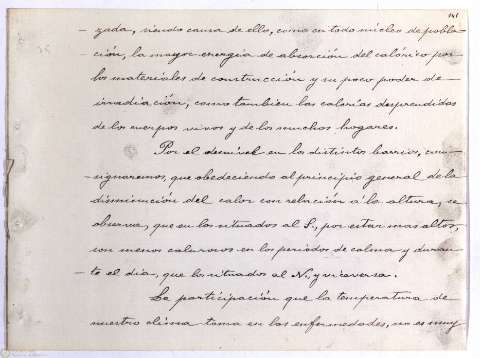 141
- zada, siendo causa de ello, como en todo núcleo de pobla-
- ción, la mayor energía de absorción del calórico por
los materiales de construcción y su poco poder de
irradiación, como tambien las calorías desprendidas
de los cuerpos vivos y de los muchos hogares.
Por el desnivel en los distintos barrios, con-
- signaremos, que obedeciendo al principio general de la
disminución del calor con relación a la altura, se
observa, que en los situados al S., por estar mas altos,
son menos calurosos en los periodos de calma y duran-
- te el día, que los situados al N. y viceversa.
La participación que la temperatura de
nuestro clima toma en las enfermedades, no es muy